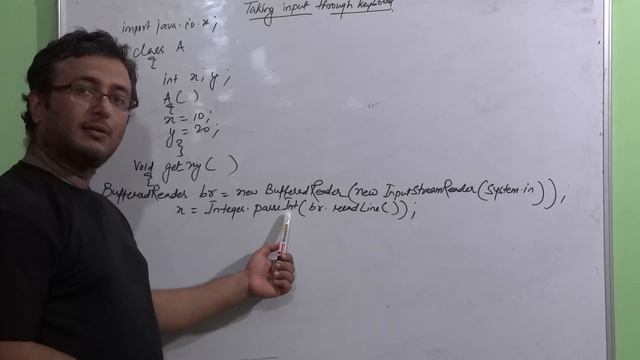 Taking input through keyboard
import java.io.*;
class A
{
int x, y;
A( )
{
x = 10;
y = 20;
}
void getxy( )
{
BufferedReader br = new BufferedReader(new InputStreamReader(System.in));
x = Integer.parseInt(br.readLine( ));